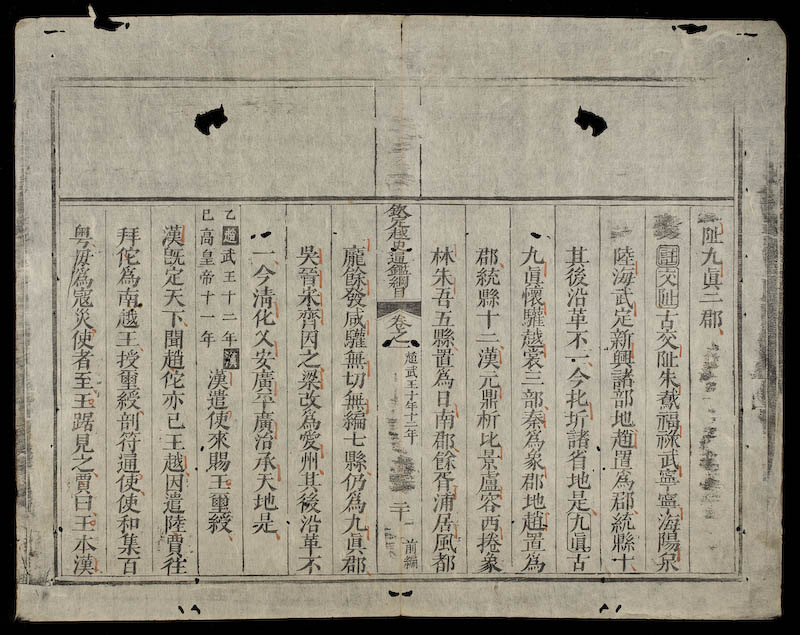 趾九眞二郡
註交趾古交趾朱䳒福祿武寧寧海陽泉
陸海武定新興諸部地趙置為郡統縣十
其後沿革不一今北圻諸省地是九眞古
九眞懷驩越裳三部秦為象郡地趙置為
郡統縣十二漢元鼎析比景盧容西捲象
林朱吾五縣置為日南郡餘胥浦居風都
欽定越史通鑑綱目 卷之一 趙武王十年十二年 二十一 前編
龐餘發咸驩無切無編七縣仍為九眞郡
吳晉宋齊因之梁改為愛州其後沿革不
一今清化乂安廣平廣治承天地是
乙巳 趙武王十二年 漢高皇帝十一年 漢遣使來賜王璽綬
漢旣定天下聞趙佗亦已王越因遣陸賈往
拜佗為南越王授璽綬剖符通使使和集百
粤毋為寇災使者至王踞見之賈曰王本漢